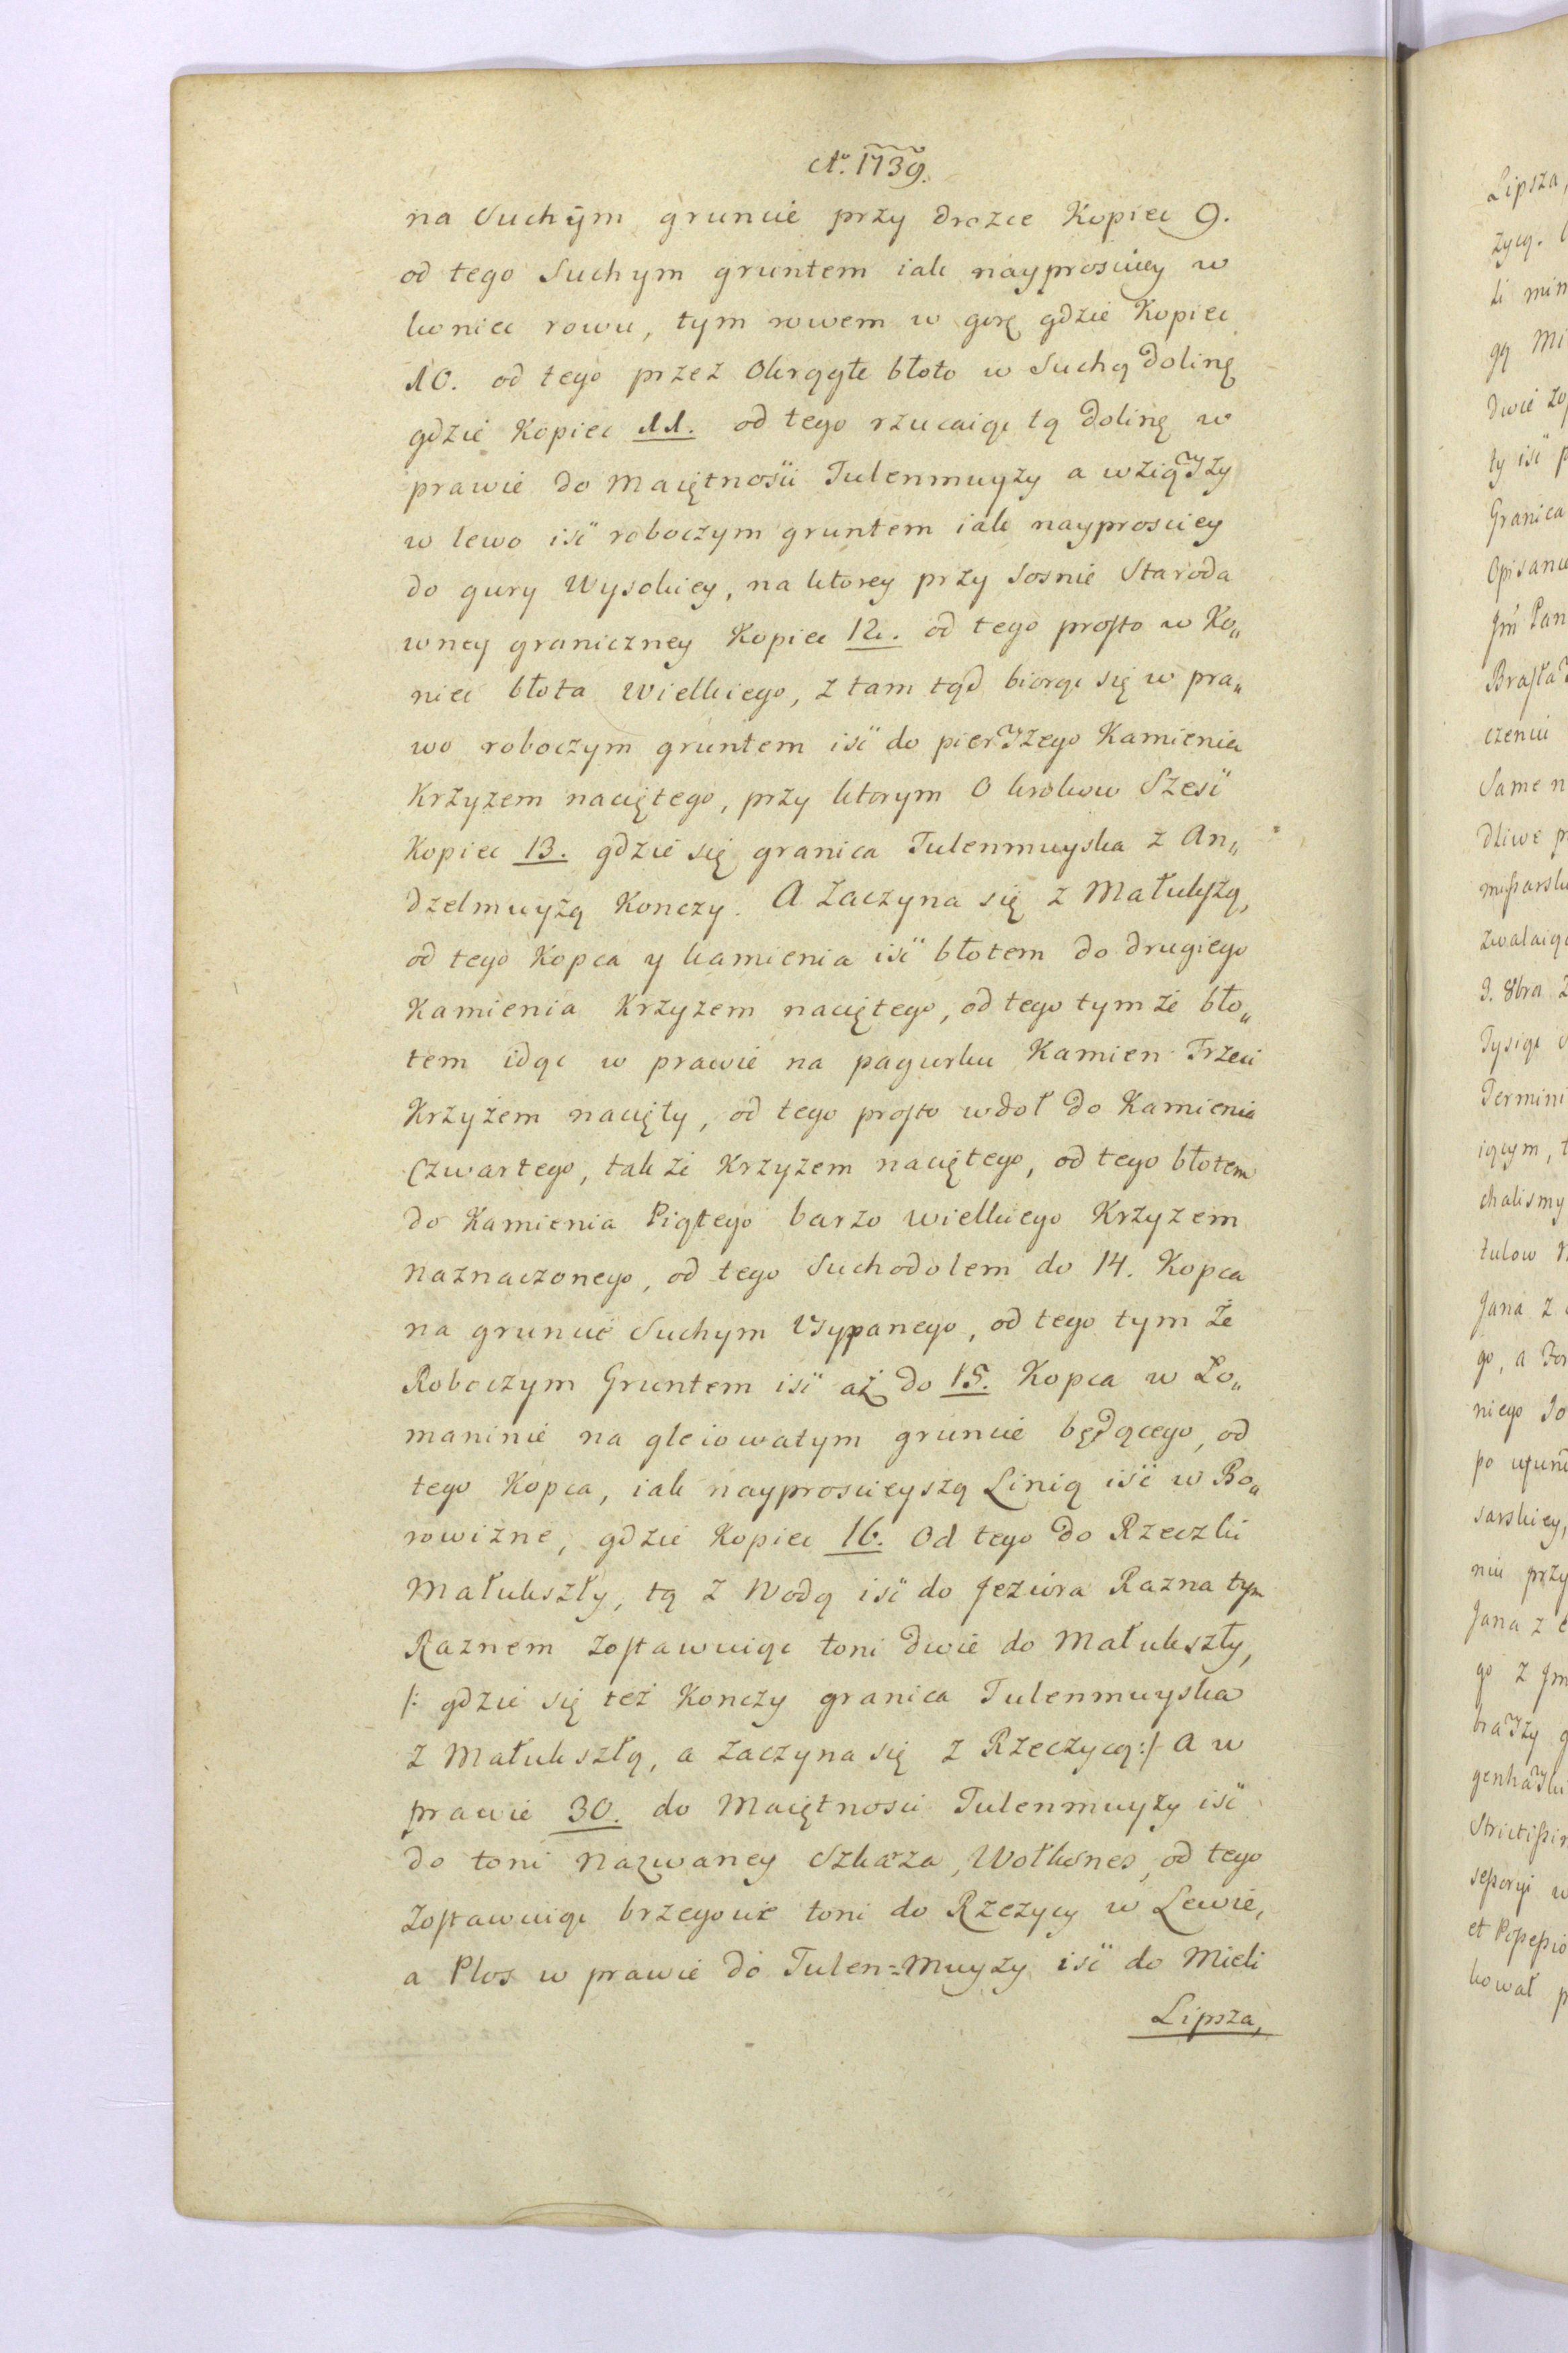 Aº. 1739.
na Suchym gruncie przy drozce Kopiec 9.
od tego Suchym gruntem iak nayprosciey w
koniec rowu, tym rowem w gorę gdzie Kopiec
10. od tego przez Okrągłe błoto w Suchą dolinę
gdzie Kopiec 11. od tego rzucaiąc tą dolinę w
prawie do Maiętnosci Tulenmuyży a wziąwszy
w lewo isć roboczym gruntem iak nayprosciey
do gury Wysokiey, na ktorey przy Sosnie Staroda
wney graniczney Kopiec 12. od tego prosto w Ko„
niec błota Wielkiego, z tam tąd biorąc się w pra„
wo roboczym gruntem isć do pierwszego Kamienia
Krzyzem naciętego, przy ktorym O krokow Szesć
Kopiec 13. gdzie się granica Tulenmuyska z An„
dzelmuyżą Konczy. A Zaczyna się z Małukszą,
od tego Kopca y kamienia isć błotem do drugiego
Kamienia Krzyzem naciętego, od tego tym że bło„
tem idąc w prawie na pagurku Kamien Trzeci
Krzyżem nacięty, od tego prosto wdoł do Kamienia
Czwartego, tak że Krzyzem naciętego, od tego błotem
do Kamienia Piątego barzo wielkiego Krzyzem
naznaczonego, od tego Suchodolem do 14. Kopca
na gruncie Suchym Usypanego, od tego tym że
Roboczym Gruntem isć aż do 15. Kopca w Ło„
maninie na gleiowatym gruncie będącego, od
tego Kopca, iak nayproscieyszą Linią isć w Bo„
rowizne, gdzie Kopiec 16. Od tego do Rzeczki
Małukszty, tą z Wodą isć do Jeziora Razna tym
Raznem Zostawuiąc toni dwie do Małukszty,
/: gdzie się też Konczy granica Tulenmuyska
z Małuksztą, a Zaczyna się z Rzeczycą:/ A w
prawie 30. do Maiętnosci Tulenmuyży isć
do toni Nazwaney Szkarza, Wołksnes, od tego
Zostawuiąc brzegowe toni do Rzezycy w Lewie,
a Plos w prawie do Tulen=Muyży isć do Mieli
Lipsza,
Lipsza,